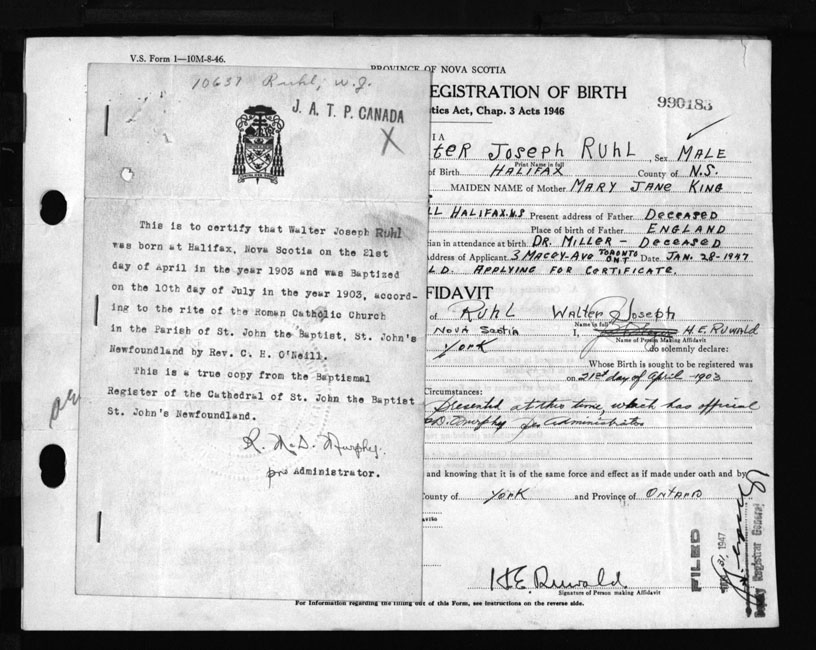 V.S. Form 1—10M-8-46.
PROVINCE OF NOVA SCOTIA
10637 Ruhl, W.J.
J. A. T. P. CANADA
X
EGISTRATION OF BIRTH
tics Act, Chap. 3 Acts 1946
990183
This is to certify that Walter Joseph Ruhl
was born at Halifax, Nova Scotia on the 21st
day of April in the year 1903 and was Baptized
on the 10th day of July in the year 1903, accord-
ing to the rite of the Roman Catholic Church
in the Parish of St. John the Baptist, St. John's
Newfoundland by Rev. C. H. O'Neill.
This is a true copy from the Baptismal
Register of the Cathedral of St. John the Baptist
St. John's Newfoundland.
R. McD. Murphy.
pro Administrator.
IA
ter Joseph Ruhl Sex Male
Print Name in full
of Birth Halifax County of N.S.
MAIDEN NAME of Mother Mary Jane King
LL Halifax N.S Present address of Father Deceased
Place of birth of Father England
cian in attendance at birth Dr. Miller – Deceased
Address of Applicant 3 Macey-Ave Toronto Ont Date Jan. 28-1947
LD. Applying for Certificate.
FIDAVIT
of Ruhl Walter Joseph
Name in full
Nova Scotia I, H.E. Ruwald
Name of Person Making Affidavit
York do solemnly declare:
Whose Birth is sought to be registered was
on 21st day of April 1903
Circumstances:
Presented at this time, which has official
D. Murphy Administrator
and knowing that it is of the same force and effect as if made under oath and by
County of York and Province of Ontario
FILED
31, 1947
Deputy Registrar General
H.E. Ruwald.
Signature of Person making Affidavit
For Information regarding the filling out of this Form, see instructions on the reverse side.